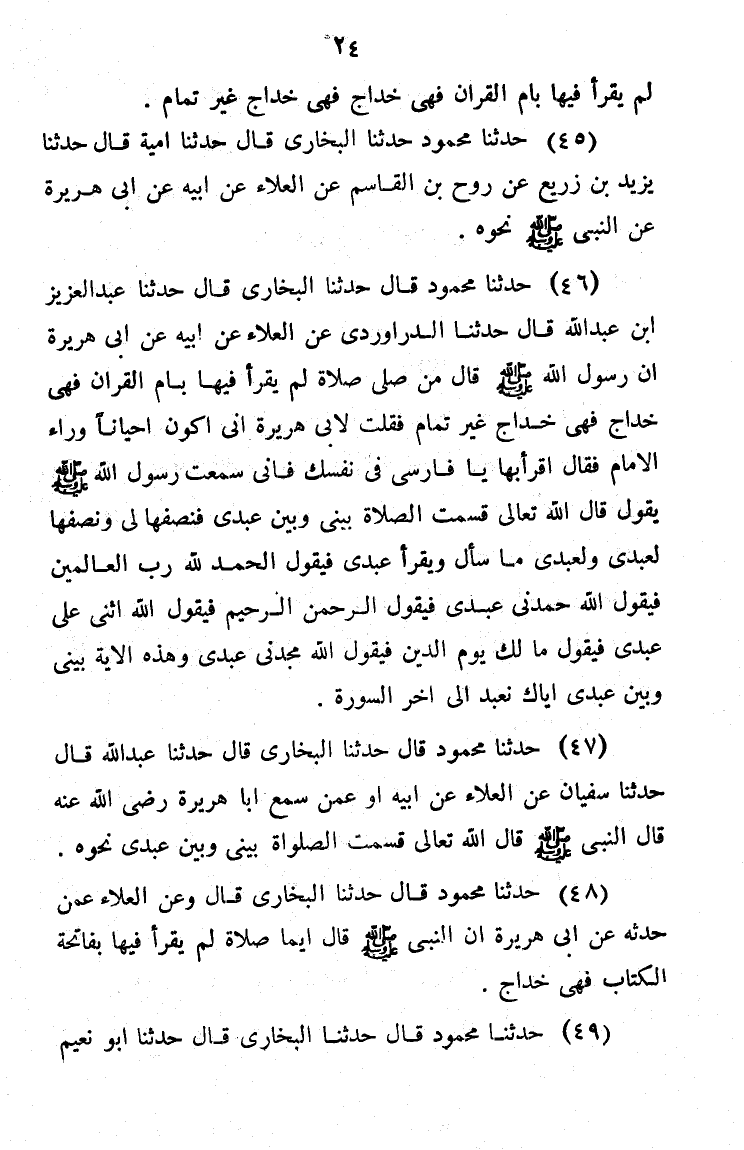 ٢٤
لم يقرأ فيها بام القران فهى خداج فهى خداج غير تمام .
(٤٥) حدثنا محمود حدثنا البخارى قال حدثنا امية قال حدثنا
يزيد بن زريع عن روح بن القاسم عن العلاء عن ابيه عن ابى هريرة
عن النبى ﷺ نحوه .
(٤٦) حدثنا محمود قال حدثنا البخارى قال حدثنا عبدالعزيز
ابن عبدالله قال حدثنا الدراوردى عن العلاء عن ابيه عن ابى هريرة
ان رسول الله ﷺ قال من صلى صلاة لم يقرأ فيها بام القران فهى
خداج فهى خداج غير تمام فقلت لابى هريرة انى اكون احياناً وراء
الامام فقال اقرأبها يا فارسى فى نفسك فانى سمعت رسول الله ﷺ
يقول قال الله تعالى قسمت الصلاة بينى وبين عبدى فنصفها لى ونصفها
لعبدى ولعبدى ما سأل ويقرأ عبدى فيقول الحمد لله رب العالمين
فيقول الله حمدنى عبدى فيقول الرحمن الرحيم فيقول الله اثنى على
عبدى فيقول ما لك يوم الدين فيقول الله مجدنى عبدى وهذه الاية بينى
وبين عبدى اياك نعبد الى اخر السورة .
(٤٧) حدثنا محمود قال حدثنا البخارى قال حدثنا عبدالله قال
حدثنا سفيان عن العلاء عن ابيه او عمن سمع ابا هريرة رضى الله عنه
قال النبى ﷺ قال الله تعالى قسمت الصلواة بينى وبين عبدى نحوه .
(٤٨) حدثنا محمود قال حدثنا البخارى قال وعن العلاء عمن
حدثه عن ابى هريرة ان النبى ﷺ قال ايما صلاة لم يقرأ فيها بفاتحة
الكتاب فهى خداج .
(٤٩) حدثنا محمود قال حدثنا البخارى قال حدثنا ابو نعيم